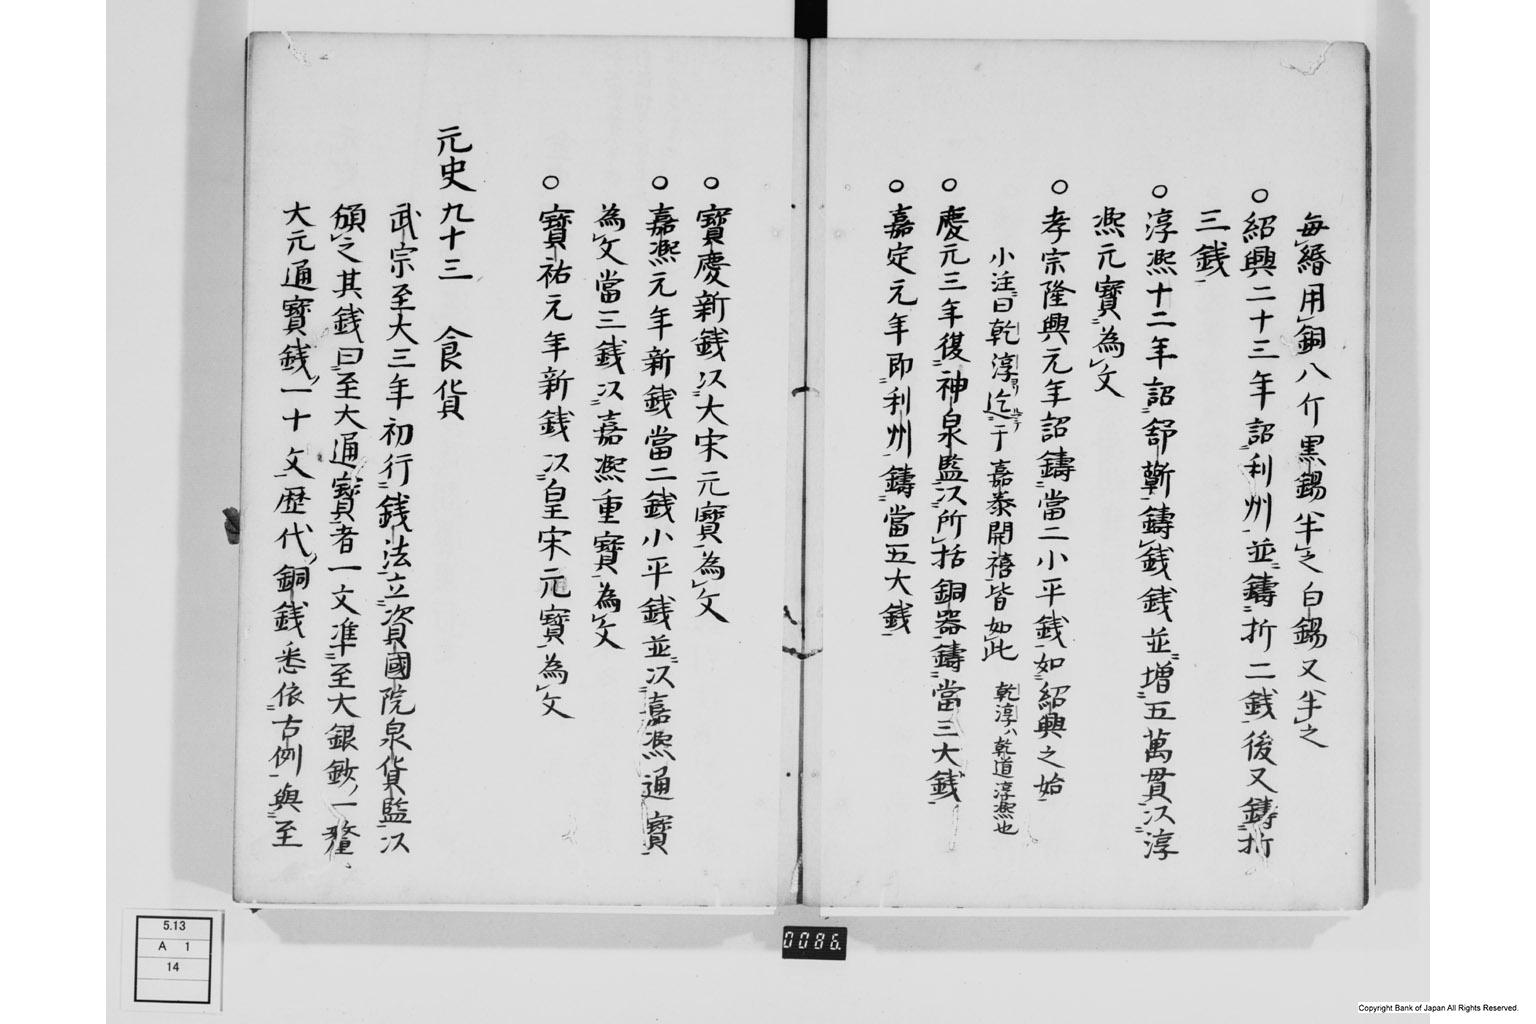 每緡用銅八斤黒錫半之白錫又半之
○紹興二十三年詔利州並鑄折二銭後又鑄折
三銭
○淳熈十二年詔舒蘄鑄銭銭並増五萬貫以淳
熈元寳為文
○孝宗隆興元年詔鑄當二小平銭如紹興之始
小注曰乾淳迄于嘉泰開禧皆如此 乾淳ハ乾道淳熈也
○慶元三年復神泉監以所括銅器鑄當三大銭
○嘉定元年即利州鑄當五大銭
○寳慶新銭以大宋元寳為文
○嘉熈元年新銭當二銭小平銭並以嘉熈通寳
為文當三銭以嘉熈重寳為文
○寳祐元年新銭以皇宋元寳為文
元史九十三 食貨
武宗至大三年初行銭法立資國院泉貨監以
頒之其銭曰至大通寳者一文準至大銀鈔一釐
大元通寳銭一十文歴代銅銭悉依古例與至
5.13
A 1
14
0086.
Copyright Bank of Japan All Rights Reserved.